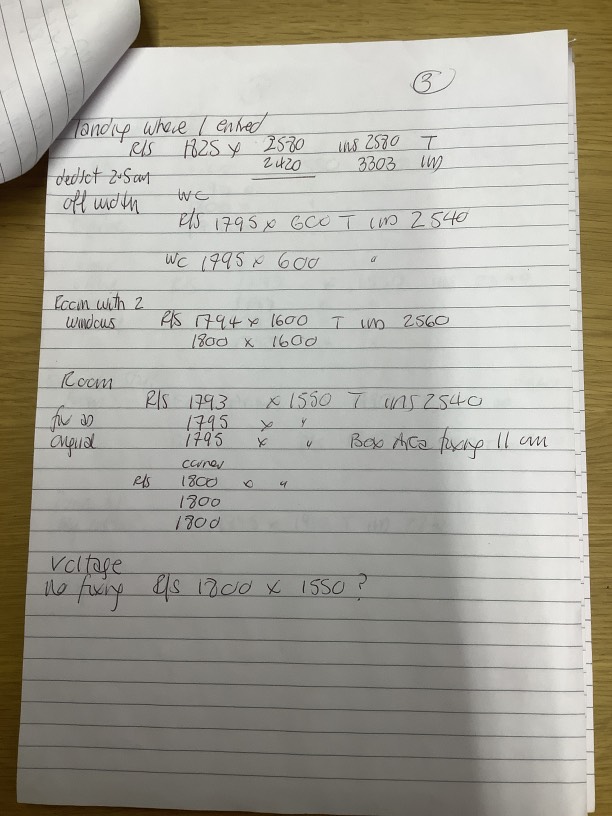 3
Landing where I entred
R/S 1825 x 2580 ins 2580 T
2420 3303 ins
deduct 2.5cm
off width WC
R/S 1795 x 600 T ins 2540
WC 1795 x 600 "
Room with 2
windows R/S 1794 x 1600 T ins 2560
1800 x 1600
Room
R/S 1793 x 1550 T ins 2540
fix as 1795 x "
original 1795 x " Box Area fixing 11 cm
corner
R/S 1800 x "
1800
1800
Voltage
no fixing R/S 1800 x 1550 ?